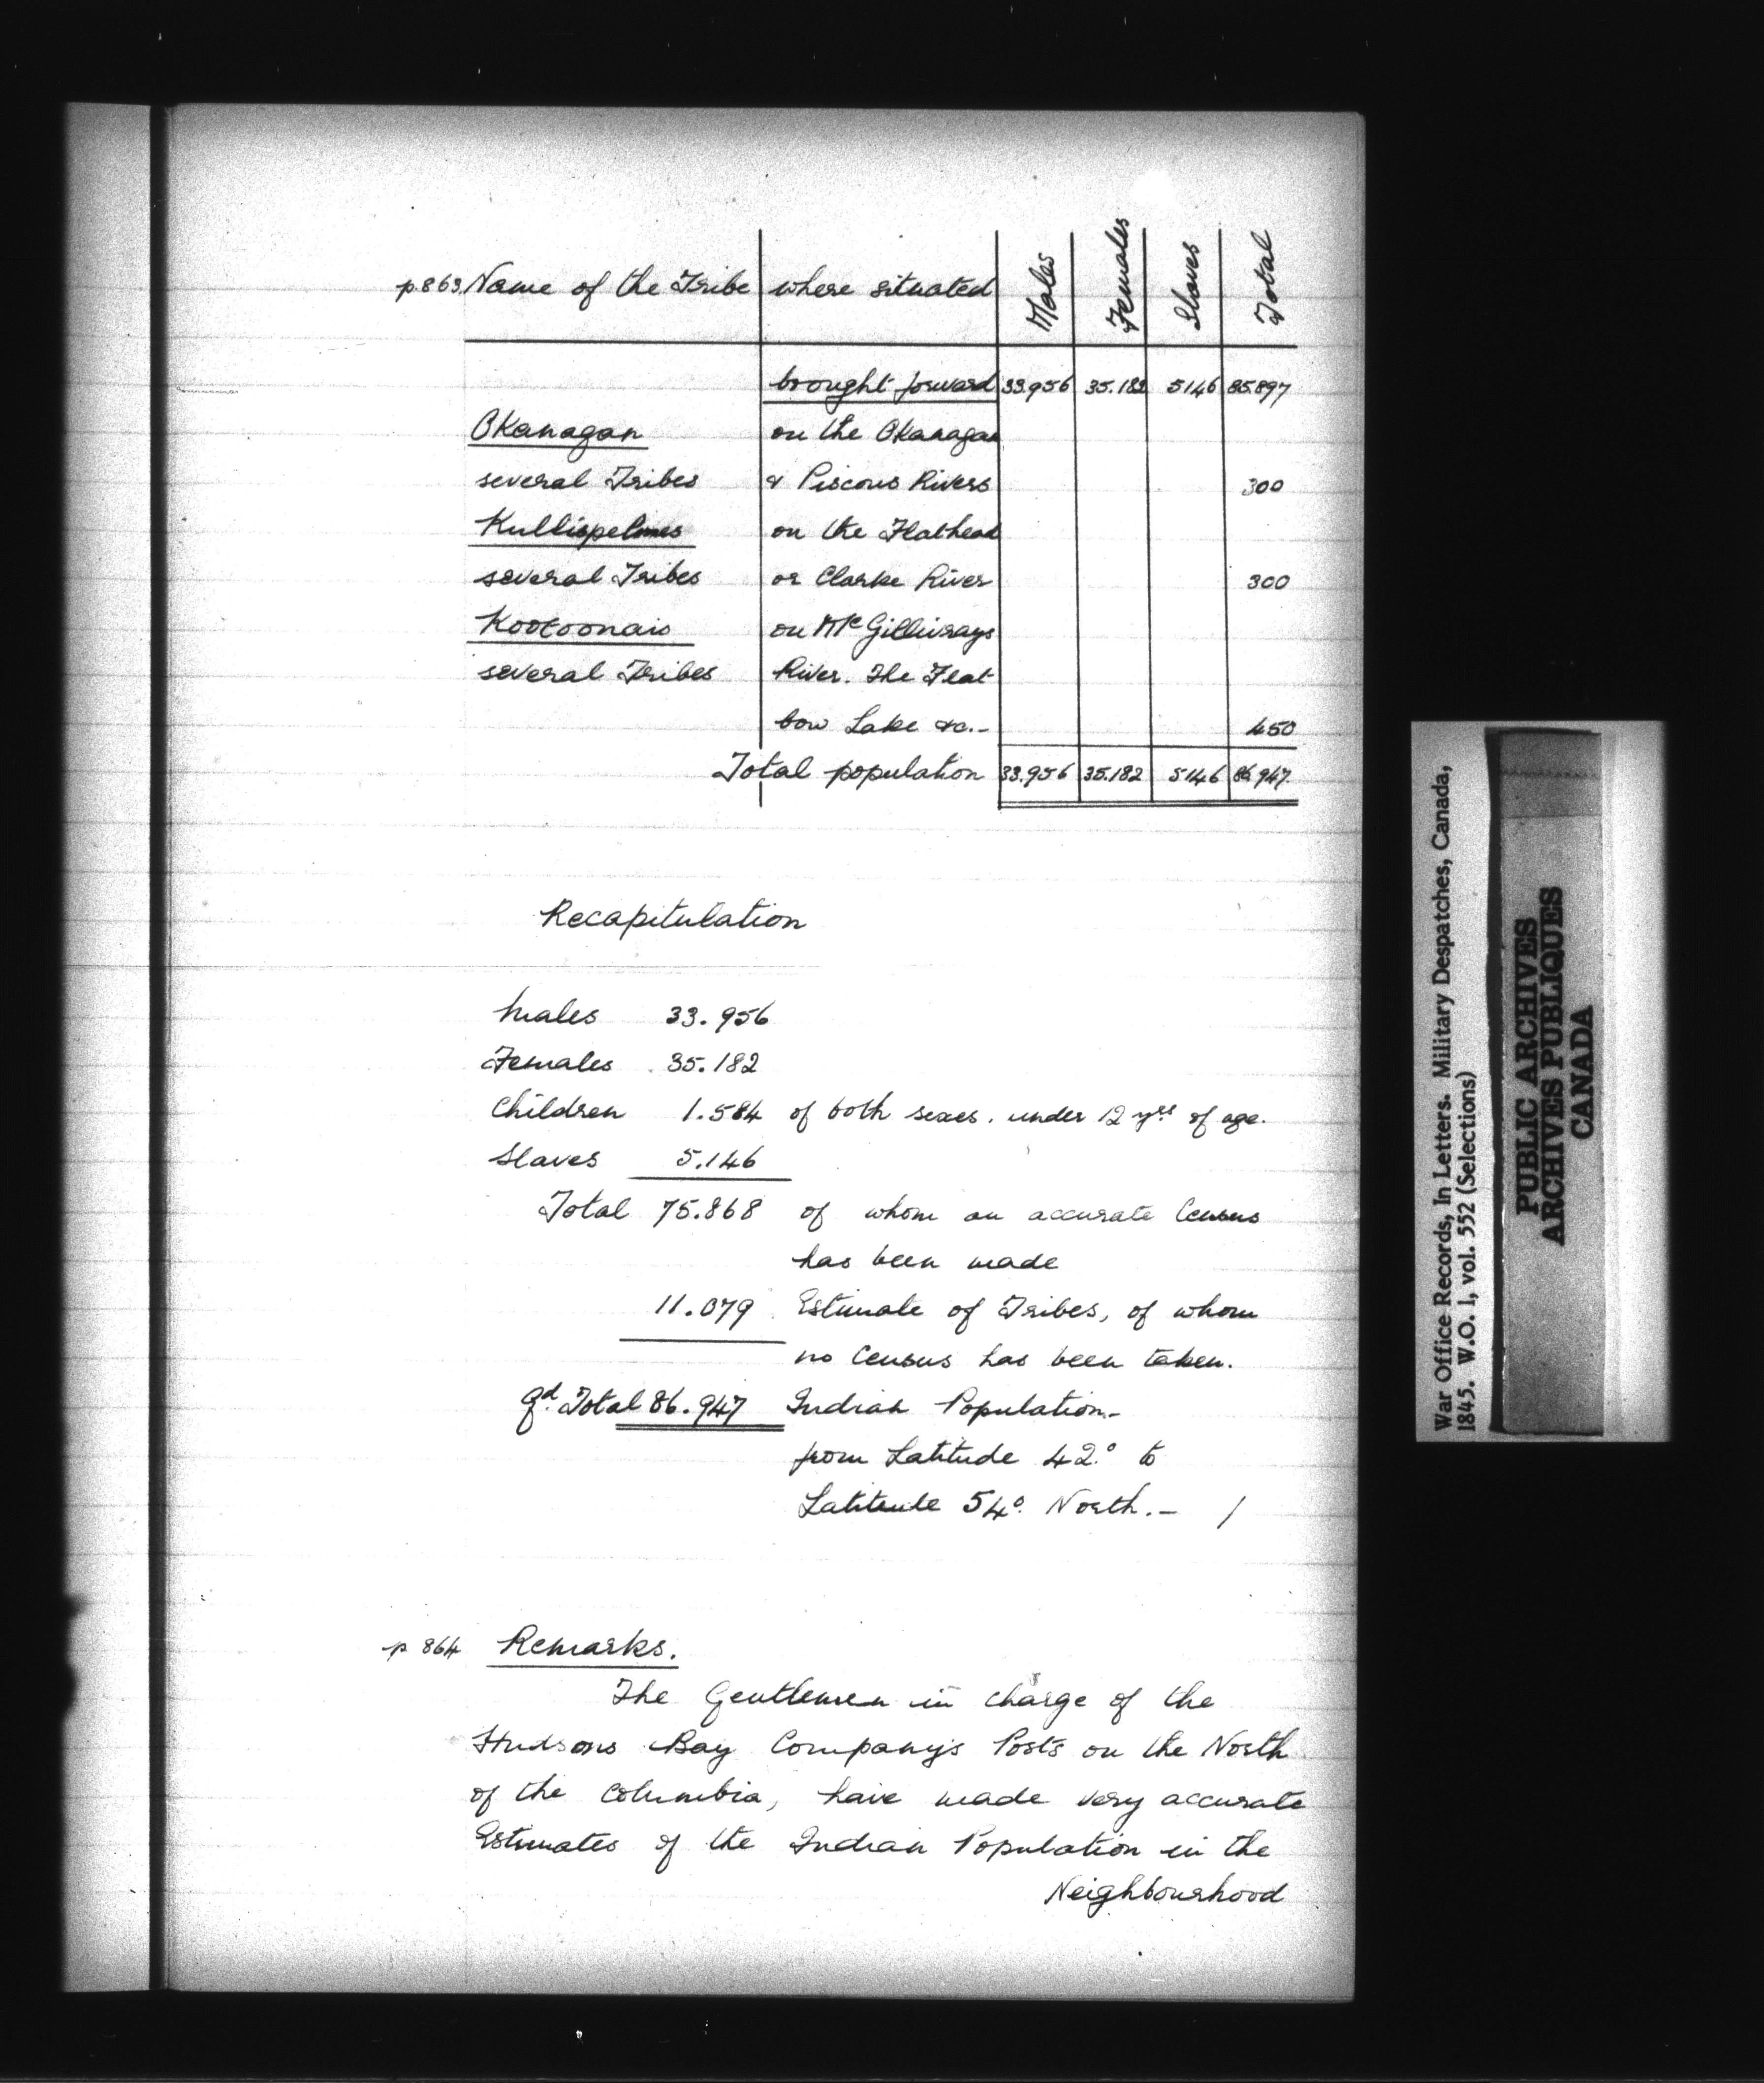 p.863 Name of the Tribe where situated Males Females Slaves Total
brought forward 33.956 35.182 5146 85.897
Okanagan on the Okanagan
several Tribes & Piscous Rivers 300
Kullispelmes on the Flathead
several Tribes or Clarke River 300
Kootoonais on McGillivrays
several Tribes River. The Flat
bow Lake &c.- 450
Total population 33.956 35.182 5146 86.947.
Recapitulation
Males 33.956
Females 35.182
Children 1.584 of both sexes. under 12 yrs of age.
Slaves 5.146
Total 75.868 of whom an accurate Census
has been made
11.079 Estimate of Tribes, of whom
no Census has been taken.
Gd. Total 86.947 Indian Population-
from Latitude 42.° to
Latitude 54°. North.- /
p 864 Remarks.
The Gentlemen in charge of the
Hudsons Bay Company's Posts on the North
of the Columbia, have made very accurate
Estimates of the Indian Population in the
Neighbourhood
War Office Records, In Letters. Military Despatches, Canada,
1845. W.O. 1, vol. 552 (Selections)
PUBLIC ARCHIVES
ARCHIVES PUBLIQUES
CANADA